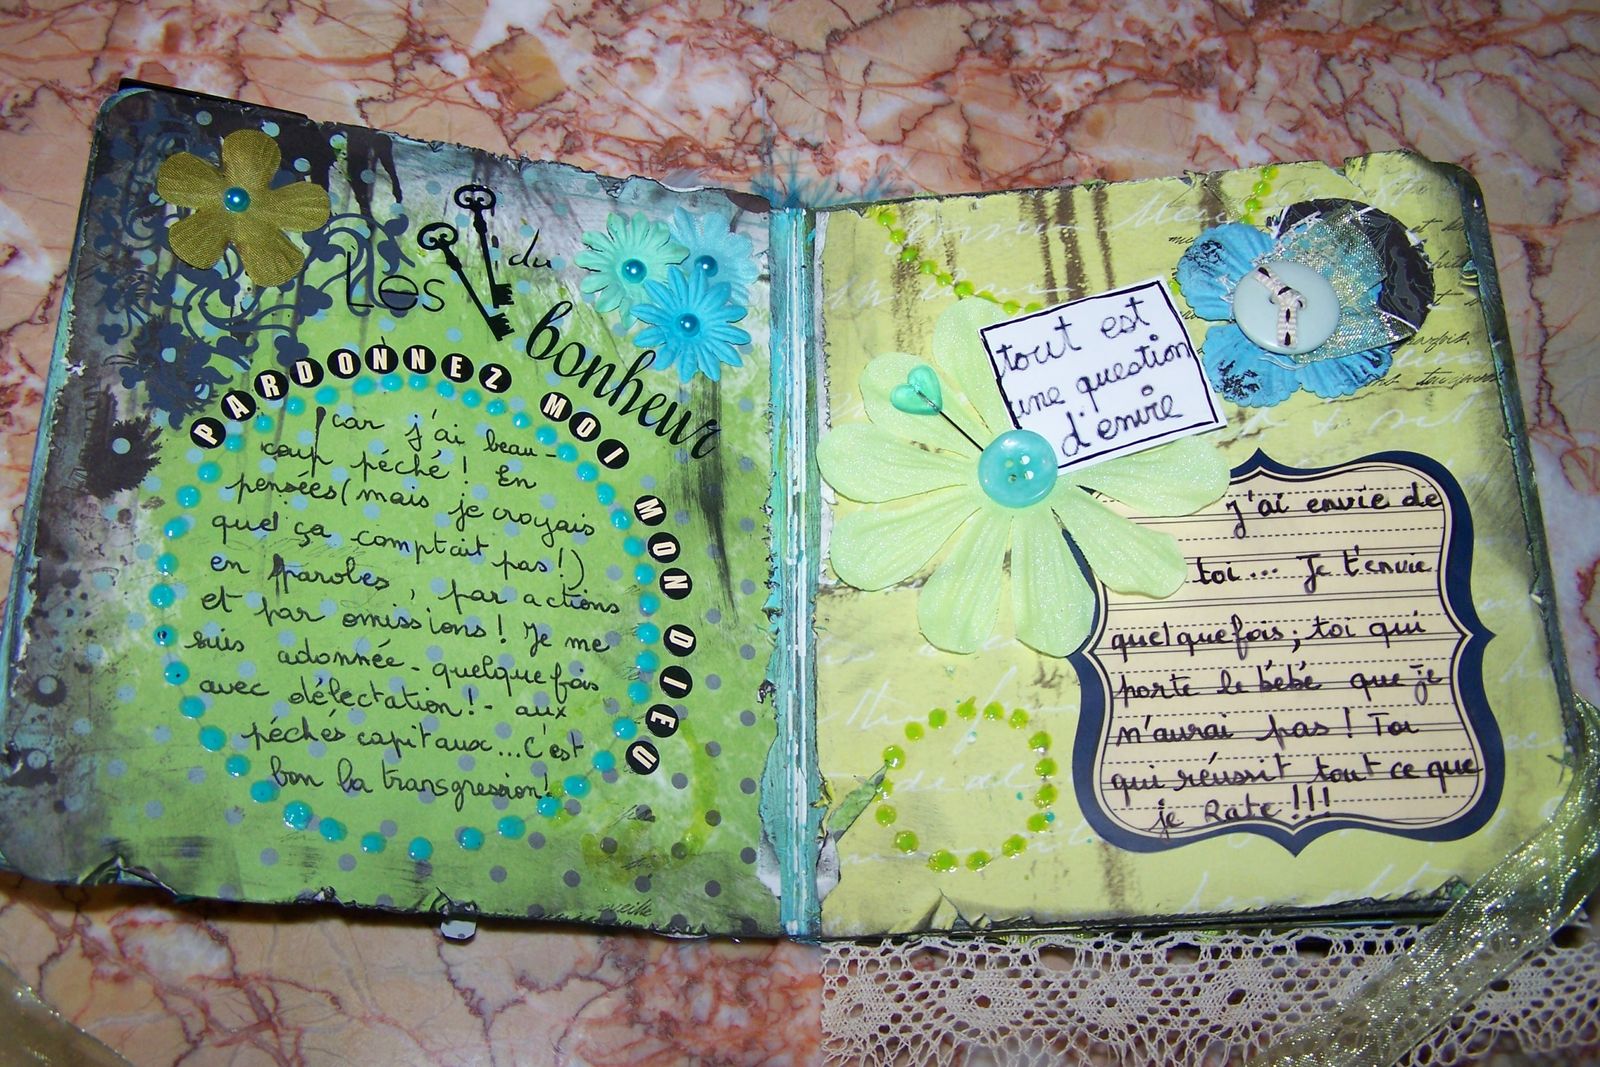 Les du
bonheur
PARDONNEZ MOI MON DIEU
car j'ai beau-
coup péché! En
pensées (mais je croyais
que ça comptait pas!)
en paroles, par actions
et par omissions! Je me
suis adonnée - quelquefois
avec délectation! - aux
péchés capitaux... C'est
bon la transgression!
tout est
une question
d'envie
j'ai envie de
toi... Je t'envie
quelquefois, toi qui
porte le bébé que je
n'aurai pas! Toi
qui réussit tout ce que
je Rate!!!